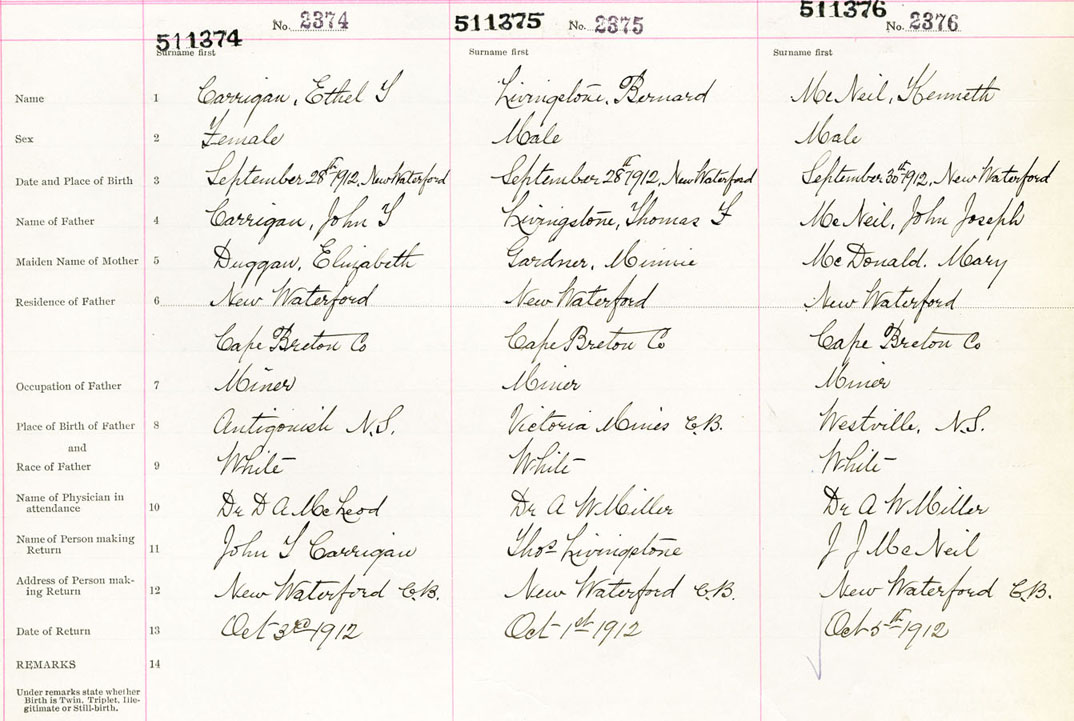 No. 2374 No. 2375 No. 2376
511374 511375 511376
Surname first Surname first Surname first
Name 1 Carrigan, Ethel S Livingstone, Bernard McNeil, Kenneth
Sex 2 Female Male Male
Date and Place of Birth 3 September 28th 1912, New Waterford September 28th 1912, New Waterford September 30th 1912, New Waterford
Name of Father 4 Carrigan, John S Livingstone, Thomas F McNeil, John Joseph
Maiden Name of Mother 5 Duggan, Elizabeth Gardner, Minnie McDonald. Mary
Residence of Father 6 New Waterford New Waterford New Waterford
Cape Breton Co Cape Breton Co Cape Breton Co
Occupation of Father 7 Miner Miner Miner
Place of Birth of Father 8 Antigonish N.S. Victoria Mines C.B. Westville, N.S.
and
Race of Father 9 White White White
Name of Physician in
attendance 10 Dr D A McLeod Dr A W Miller Dr A W Miller
Name of Person making
Return 11 John S Carrigan Thos Livingstone J J McNeil
Address of Person mak-
ing Return 12 New Waterford C.B. New Waterford C.B. New Waterford C.B.
Date of Return 13 Oct 3rd 1912 Oct 1st 1912 Oct 5th 1912
REMARKS 14
Under remarks state whether
Birth is Twin, Triplet, Ille-
gitimate or Still-birth.